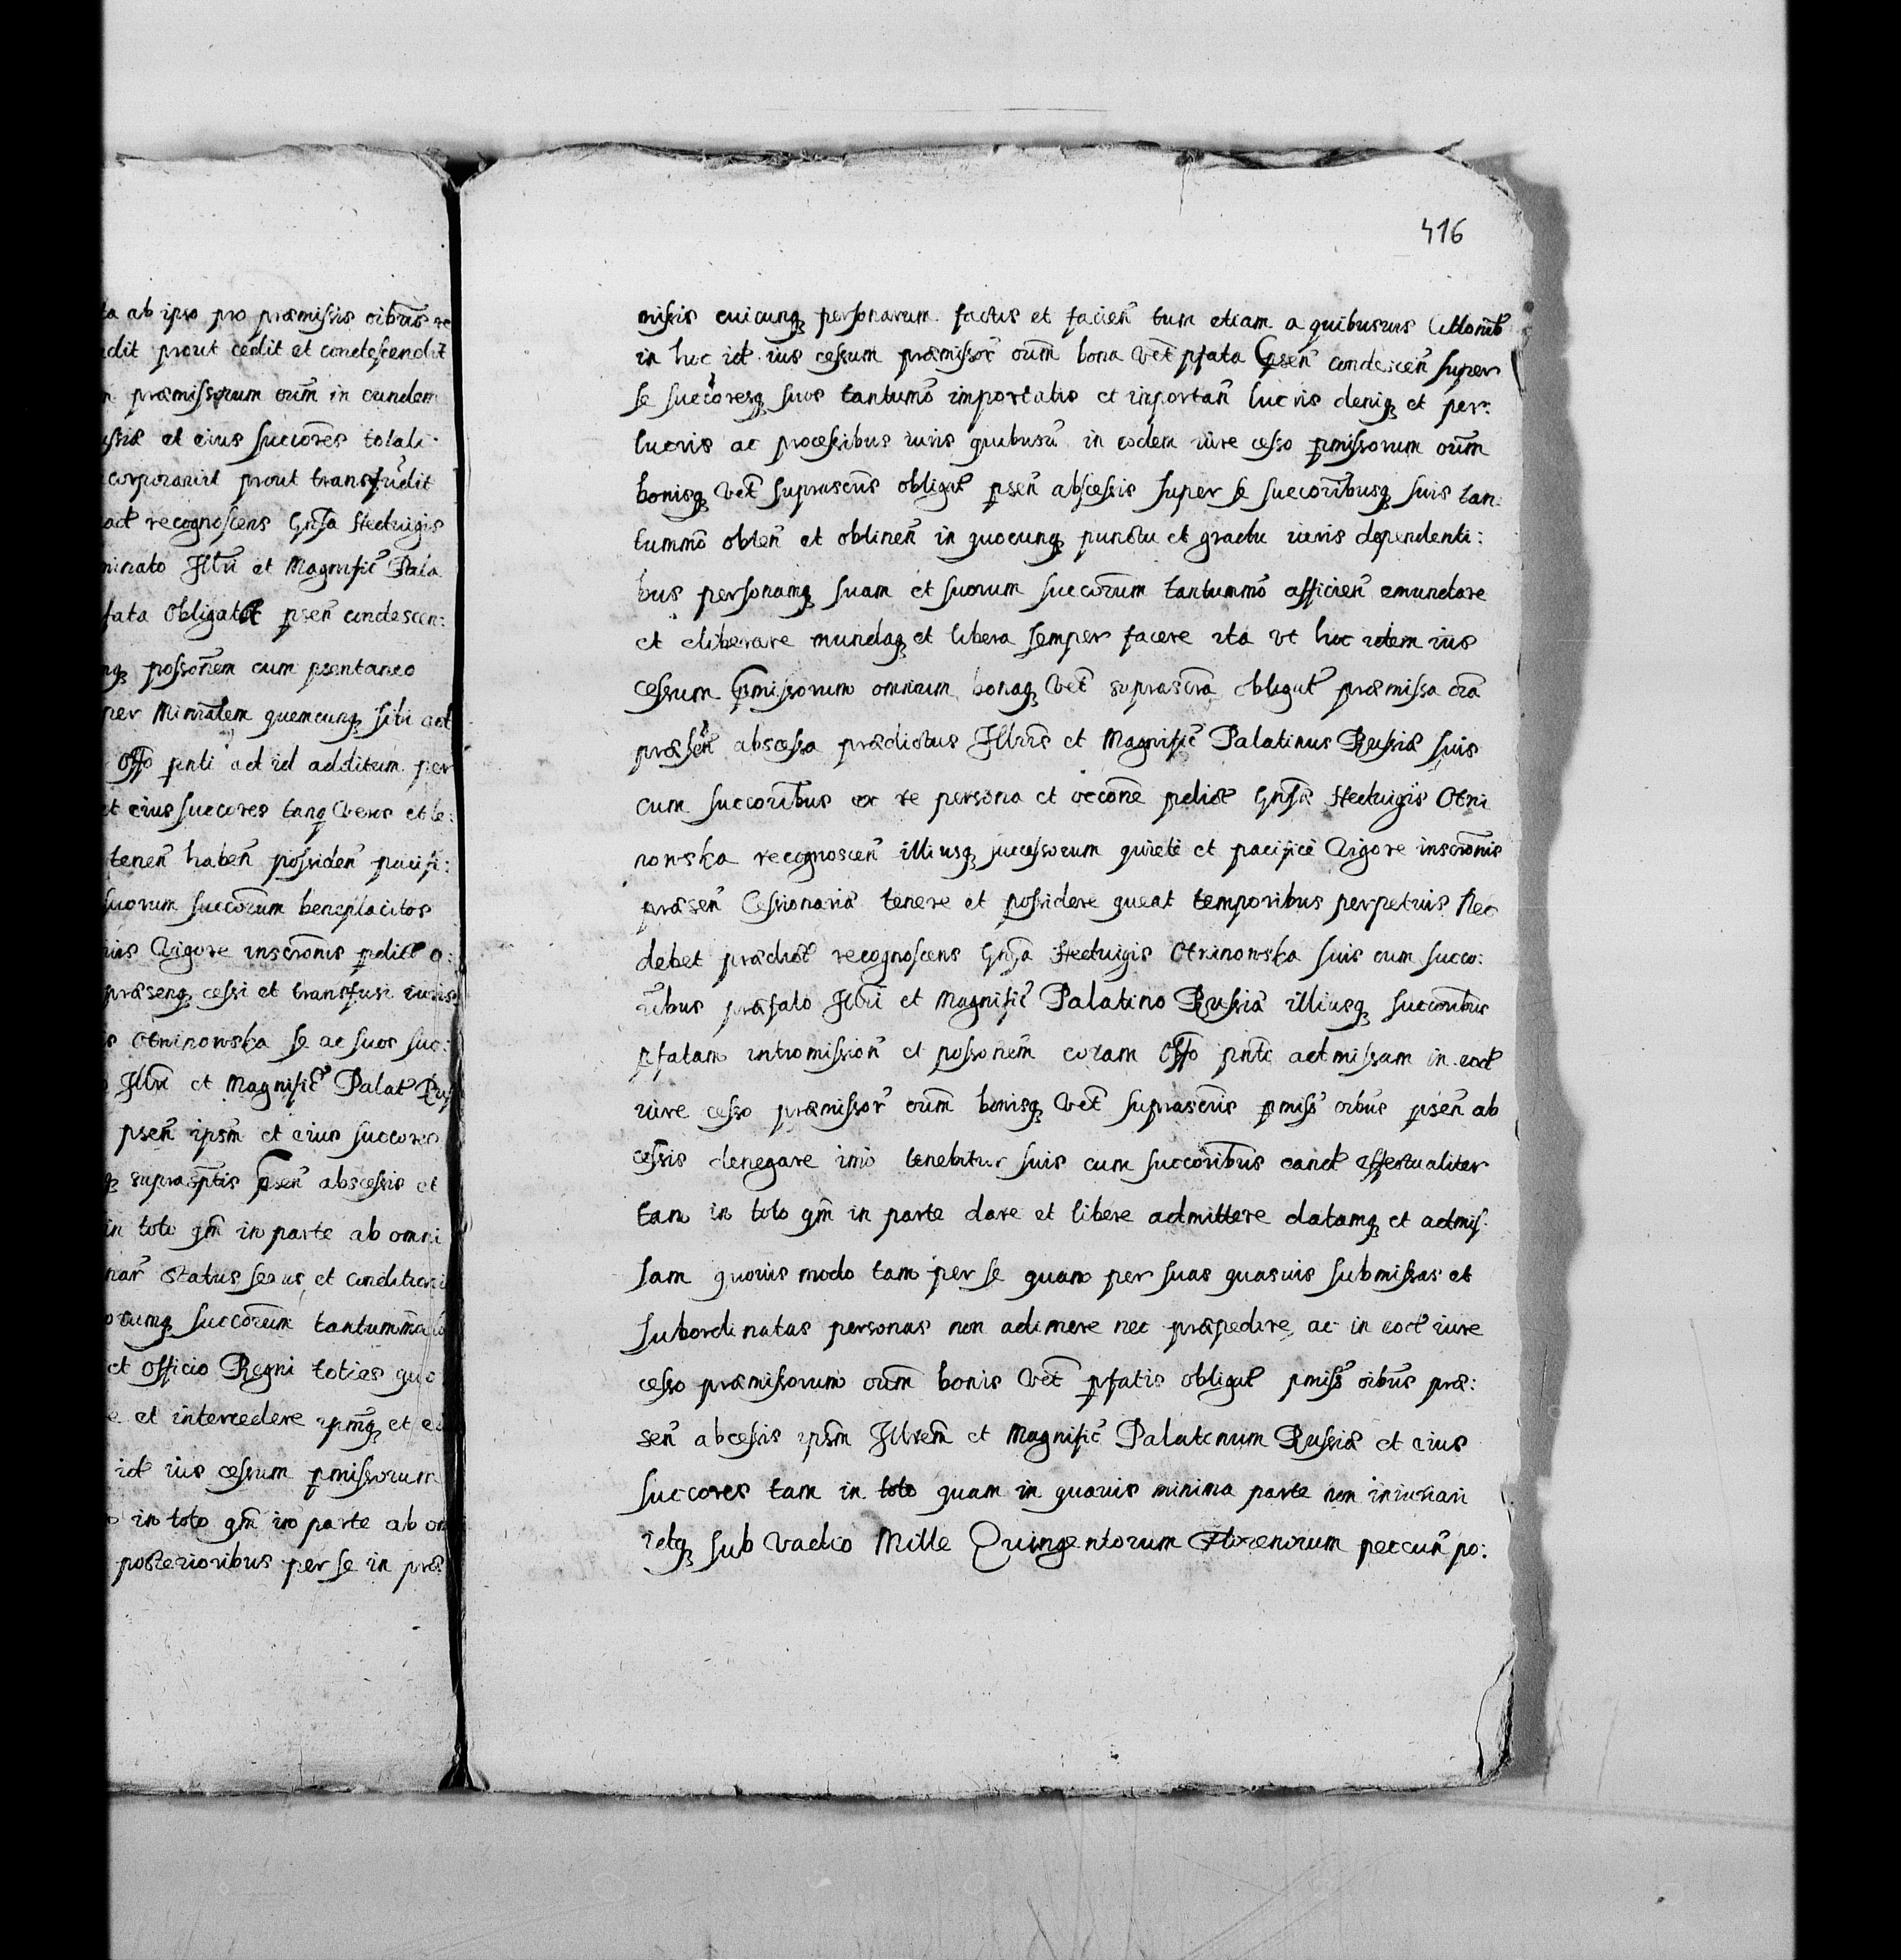 ta ab ipso pro præmissis oibus re
dit prout cedit et condescendit
præmissorum oium in eundem
ussiæ et eius succores totali:
corporavit prout transfudit
recognoscens Gnsa Heduigis
minato Illri et Magnific Pala
fata obligat psen condescen:
possonem cum psentaneo
per Minralem quemcunq sibi ad
Offo pnti ad id additum per
et eius succores tanq veros et le:
tenen haben possiden pacifi:
suorum succorum beneplacitos
uis vigore inscronis pdict a:
præsenq cessi et transfusi iuris
s Otfinowska se ac suos suc:
Illri et Magnific Palat Rus
psen ipsm et eius succores
q supraptis psen abscessis et
in toto qm in parte ab omni
nar status sexus et conditionis
orumq succorum tantummo
et officio Regni toties quo
e et intercedere ipmq et ei
id ius cessum pmissorum
o in toto qm in parte ab om
posterioribus per se in præ
416
missis cuicunq personarum factis et facien tum etiam a quibusuis
in hoc id ius cessum præmissor oum bona vet pfata psen condescen super
se succoresq suos tantumo importatis et importan lucris deniq et per:
lucris ac processibus iuris quibusu in eodem iure cesso pmissorum oum
bonisq vet suprascris obligat psen abscessis super se succoribusq suis tan:
tummo obten et obtinen in quocunq punctu et gradu iuris dependenti:
bus personamq suam et suorum succorum tantummo afficien emundare
et eliberare mundaq et libera semper facere ita vt hoc idem ius
cessum pmissorum omnium bonaq vet suprascra obligat præmissa oia
præsen abscessa prædictus Illris et Magnific Palatinus Russiæ suis
cum succoribus ex re persona et occone pdict Gnsæ Heduigis Otfi
nowska recognoscen illiusq successorum quiete et pacifice vigore inscronis
præsen Cessionariæ tenere et possidere queat temporibus perpetuis Nec
debet prædict recognoscens Gnsa Heduigis Otfinowska suis cum succo:
ribus præfato Illri et Magnific Palatino Russiæ illiusq succoribus
pfatam intromission et possonem coram Offo pnti admissam in eod
iure cesso præmissor oum bonisq vet suprascris pmiss oibus psen ab
cessis denegare imo tenebitur suis cum succoribus eand effectualiter
tam in toto qm in parte dare et libere admittere datamq et admis:
sam quouis modo tam per se quam per suas quasuis submissas et
subordinatas personas non adimere nec præpedire ac in eod iure
cesso præmissorum oum bonis vet pfatis obligat pmiss oibus præ:
sen abcessis ipsm Illrem et Magnific Palatinum Russiæ et eius
succores tam in toto quam in quauis minima parte non iniuriari
idq sub vadio Mille Quingentorum Florenorum peccun po: